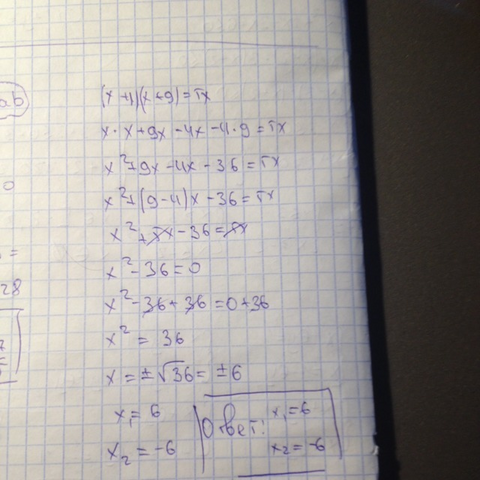 ab
(x+4)(x+9)=5x
x·x+9x-4x-4·9=5x
x²+9x-4x-36=5x
0
x²+(9-4)x-36=5x
x²+5x-36=5x
=
x²-36=0
28
x²-36+36=0+36
x²=36
x=±√36=±6
x₁=6
Ответ: x₁=6
x₂=-6
x₂=-6